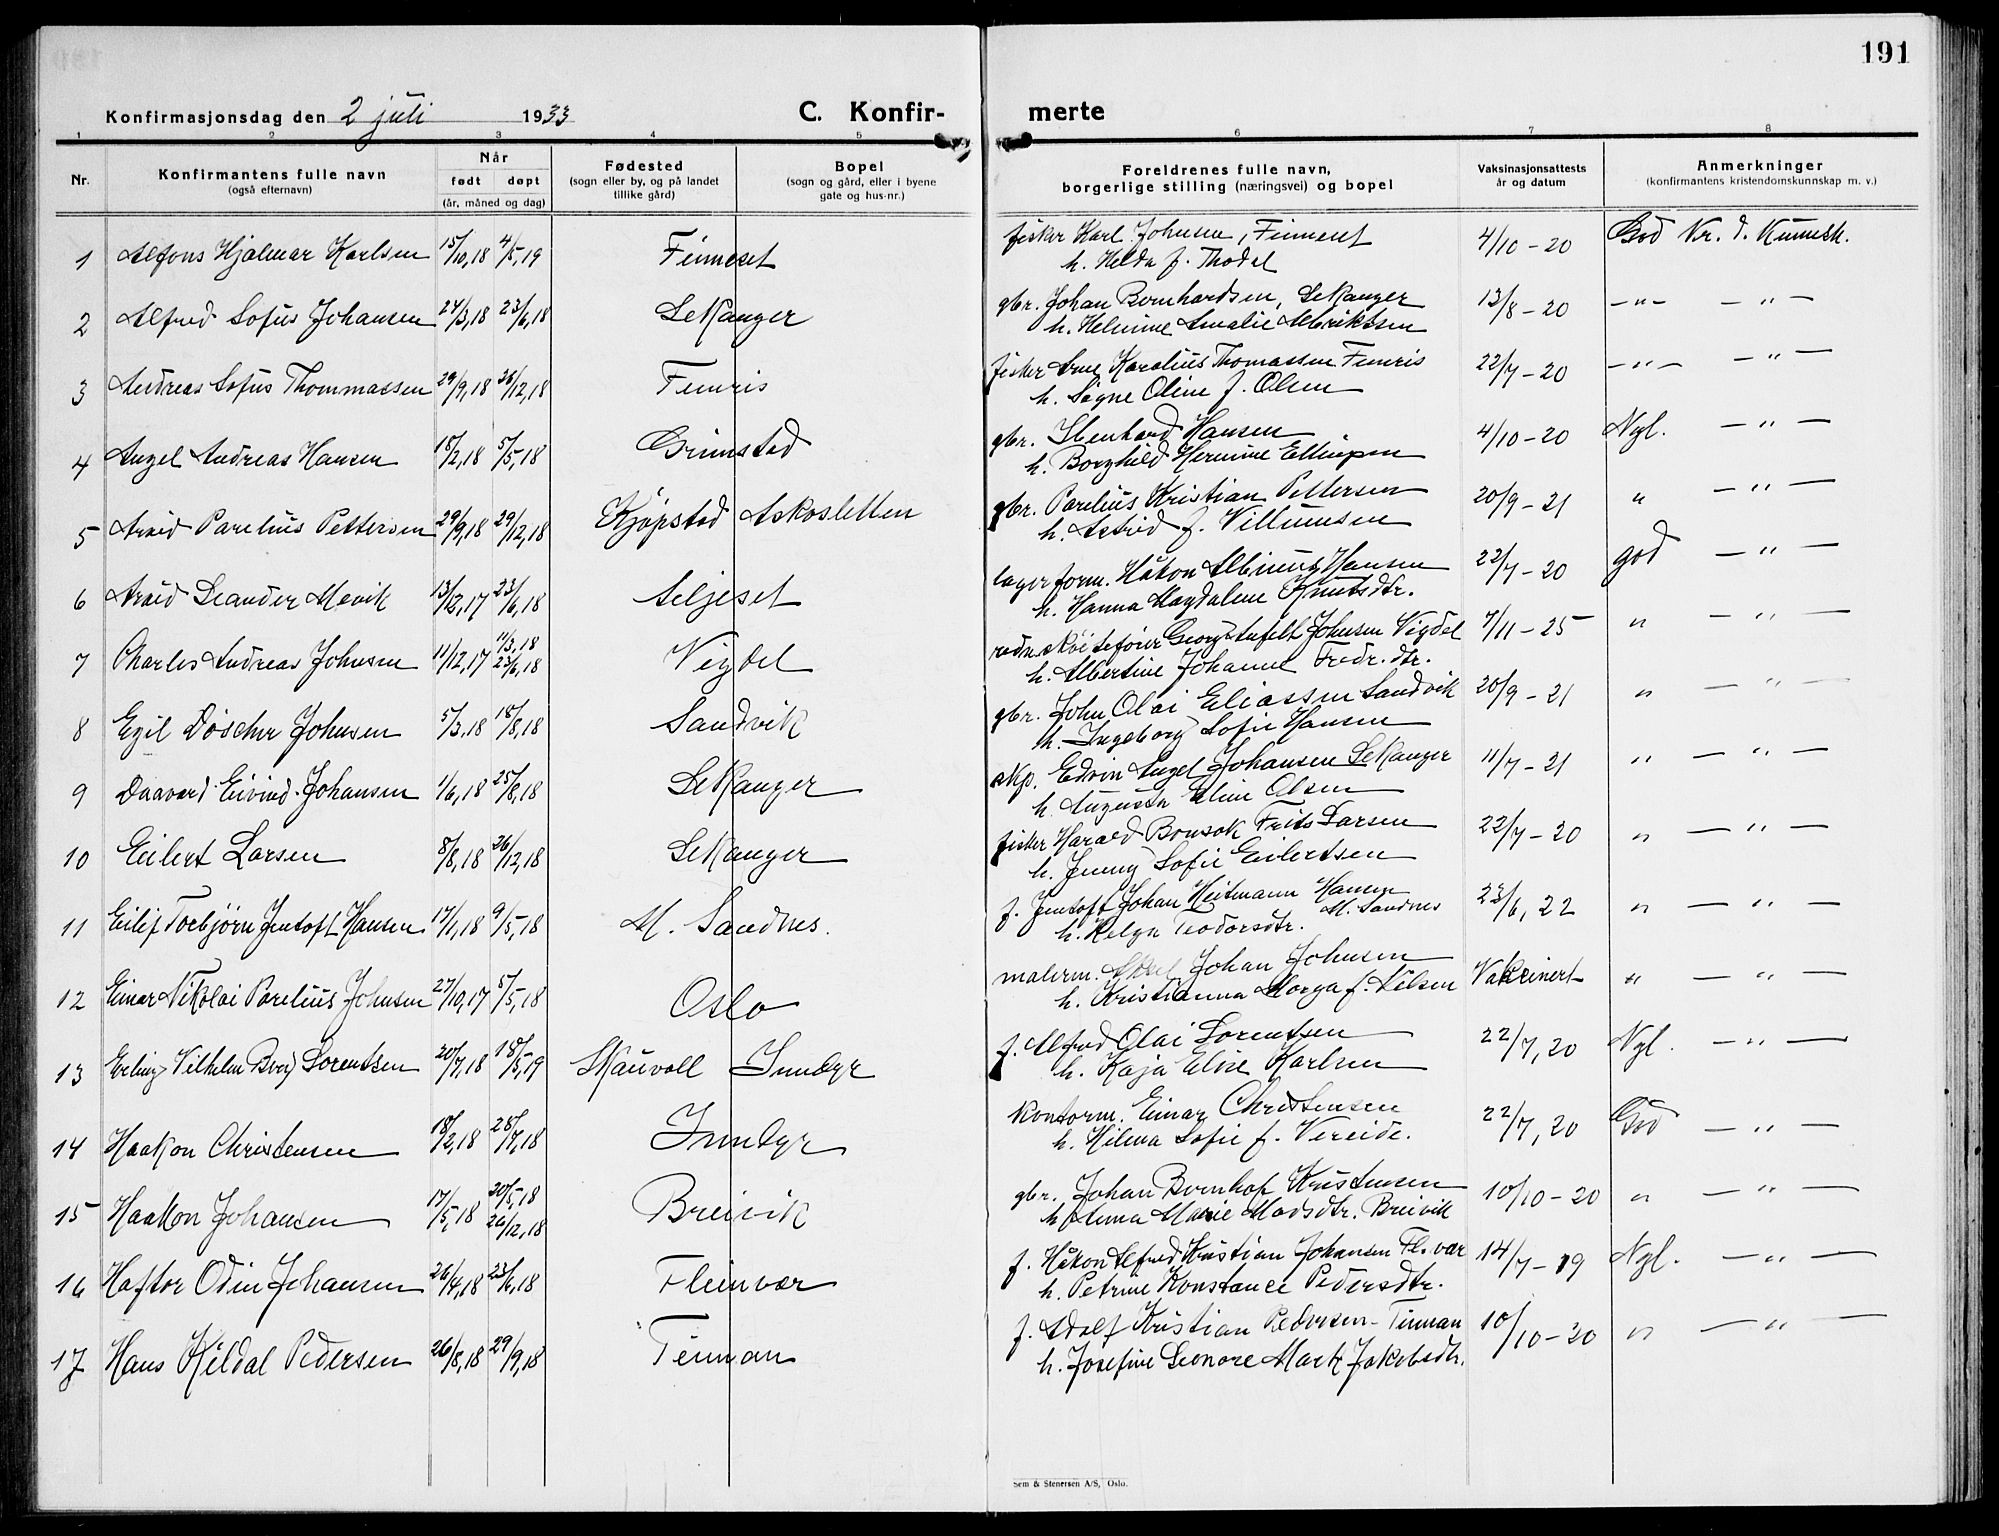 191
Konfirmasjonsdag den 2 juli 1933 C. Konfir- merte
1 2 3 4 5 6 7 8
Nr. Konfirmantens fulle navn (også efternavn) Når født døpt (år, måned og dag) Fødested (sogn eller by, og på landet tillike gård) Bopel (sogn og gård, eller i byene gate og hus-nr.) Foreldrenes fulle navn, borgerlige stilling (næringsvei) og bopel Vaksinasjonsattests år og datum Anmerkninger (konfirmantens kristendomskunnskap m. v.)
1 Alfons Hjalmar Karlsen 15/10,18 4/5,19 Finneset fisker Karl Johnsen, Finneset 4/10-20 God Kr. d. Kunnsk.
h. Helda f. Thodal
2 Alfred Sofus Johansen 24/3,18 23/6,18 Lekanger gbr. Johan Bernhardsen, Lekanger 13/8-20 -"- -"-
h. Helmine Amalie Albriktsen
3 Andreas Sofus Thommassen 29/9,18 26/12,18 Femris fisker Arne Karolius Thomassen Femris 22/7-20 -"- -"-
h. Signe Oline f. Olsen
4 Angel Andreas Hansen 18/2,18 5/5,18 Grimstad gbr. Ibenhard Hansen 4/10-20 Ngl. -"-
h. Borghild Hermine Ellingsen
5 Arvid Parelius Pettersen 29/9,18 29/12,18 Kjøpstad Askosletten gbr. Parelius Kristian Pettersen 20/9-21 " -"-
h. Astrid f. Villumsen
6 Arvid Leander Mevik 13/12,17 23/6,18 Seljeset lagerform. Håkon Albinus Hansen 22/7-20 god -"-
h. Hanna Magdalene Knutsdtr.
7 Charles Andreas Johnsen 11/12,17 11/3,18 23/6,18 Vigdel redn.skøitefører Georg Anfelt Johnsen Vigdel 7/11-25 " -"-
h. Albertine Johanne Fredr.dtr.
8 Egil Døscher Johnsen 5/3,18 18/8,18 Sandvik gbr. John Olai Eliassen Sandvik 20/9-21 " -"-
h. Ingeborg Sofie Hansen
9 Daavard Eivind Johansen 1/6,18 25/8,18 Lekanger skp. Edvin Angel Johansen Lekanger 11/7-21 " -"-
h. Augusta Eline Olsen
10 Eilert Larsen 8/8,18 26/12,18 Lekanger fisker Harald Bonsak Frits Larsen 22/7-20 " -"-
h. Jenny Sofie Eilertsen
11 Eilif Torbjørn Jentoft Hansen 17/1,18 9/5,18 M. Sandnes. f. Jentoft Johan Heitmann Hansen M. Sandnes 23/6, 22 " -"-
h. Helga Teodorsdtr.
12 Einar Nikolai Parelius Johnsen 27/10,17 5/5,18 Oslo malerm. Johan Johnsen Vaksinert " -"-
h. Kristianna Marga f. Nilsen
13 Erling Vilhelm Berg Lorentsen 20/7,18 18/5,19 Skauvoll Inndyr f. Alfred Olai Lorentsen 22/7, 20 Ngl. -"-
h. Kaja Elise Karlsen
14 Haakon Christensen 18/2,18 28/7,18 Inndyr kontorm. Einar Christensen 22/7, 20 God -"-
h. Hilma Sofie f. Vereide.
15 Haakon Johansen 17/5,18 20/5,18 26/12,18 Breivik gbr. Johan Bernhof Kristensen 10/10-20 " -"-
h. Anna Marie Madsdtr. Breivik
16 Haftor Odin Johansen 26/4,18 23/6,18 Fleinvær f. Håkon Alfred Kristian Johansen Fl.vær 14/7-19 Ngl. -"-
h. Petrine Konstance Pedersdtr.
17 Hans Kildal Pedersen 26/8,18 29/9,18 Tennan f. Adolf Kristian Pedersen-Tinnan 10/10-20 " -"-
h. Josefine Leonore Mark Jakobsdtr.
Sem & Stenersen A/S, Oslo.